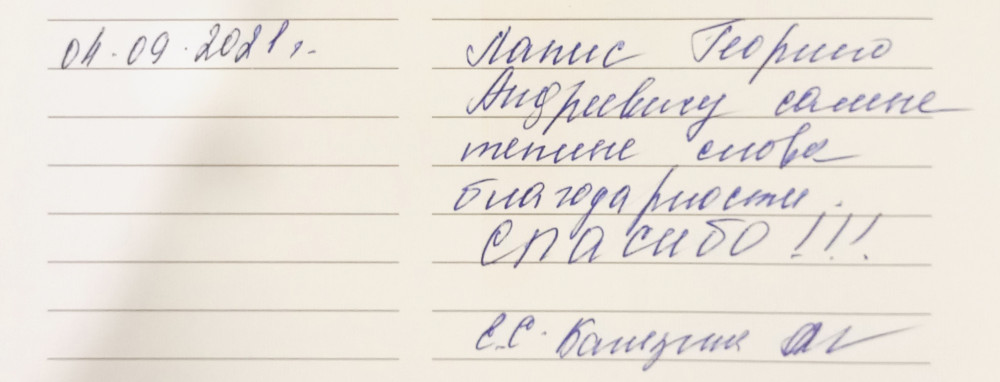 04.09.2021 г.
Лапис Георгию
Андреевичу самые
теплые слова
благодарности.
СПАСИБО!!!
Е.С.